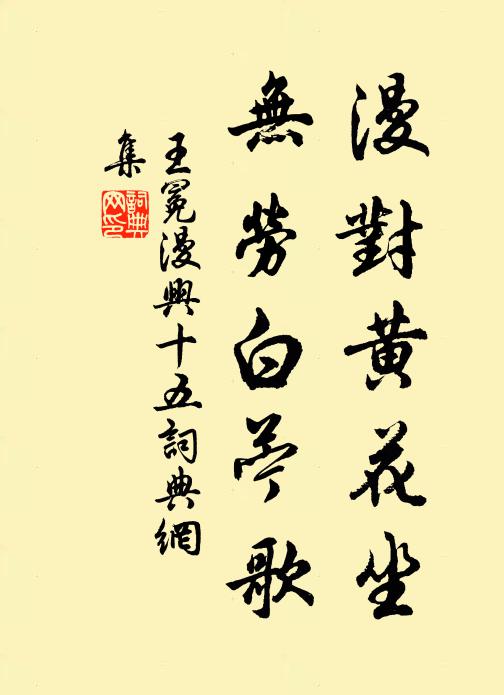 漫對黃花坐
無勞白苧歌
王冕漫興十五詞典網
集
詞典
网印